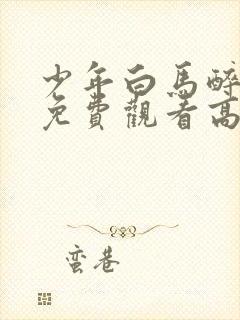 少年白馬醉
免費觀看高
蛮巷